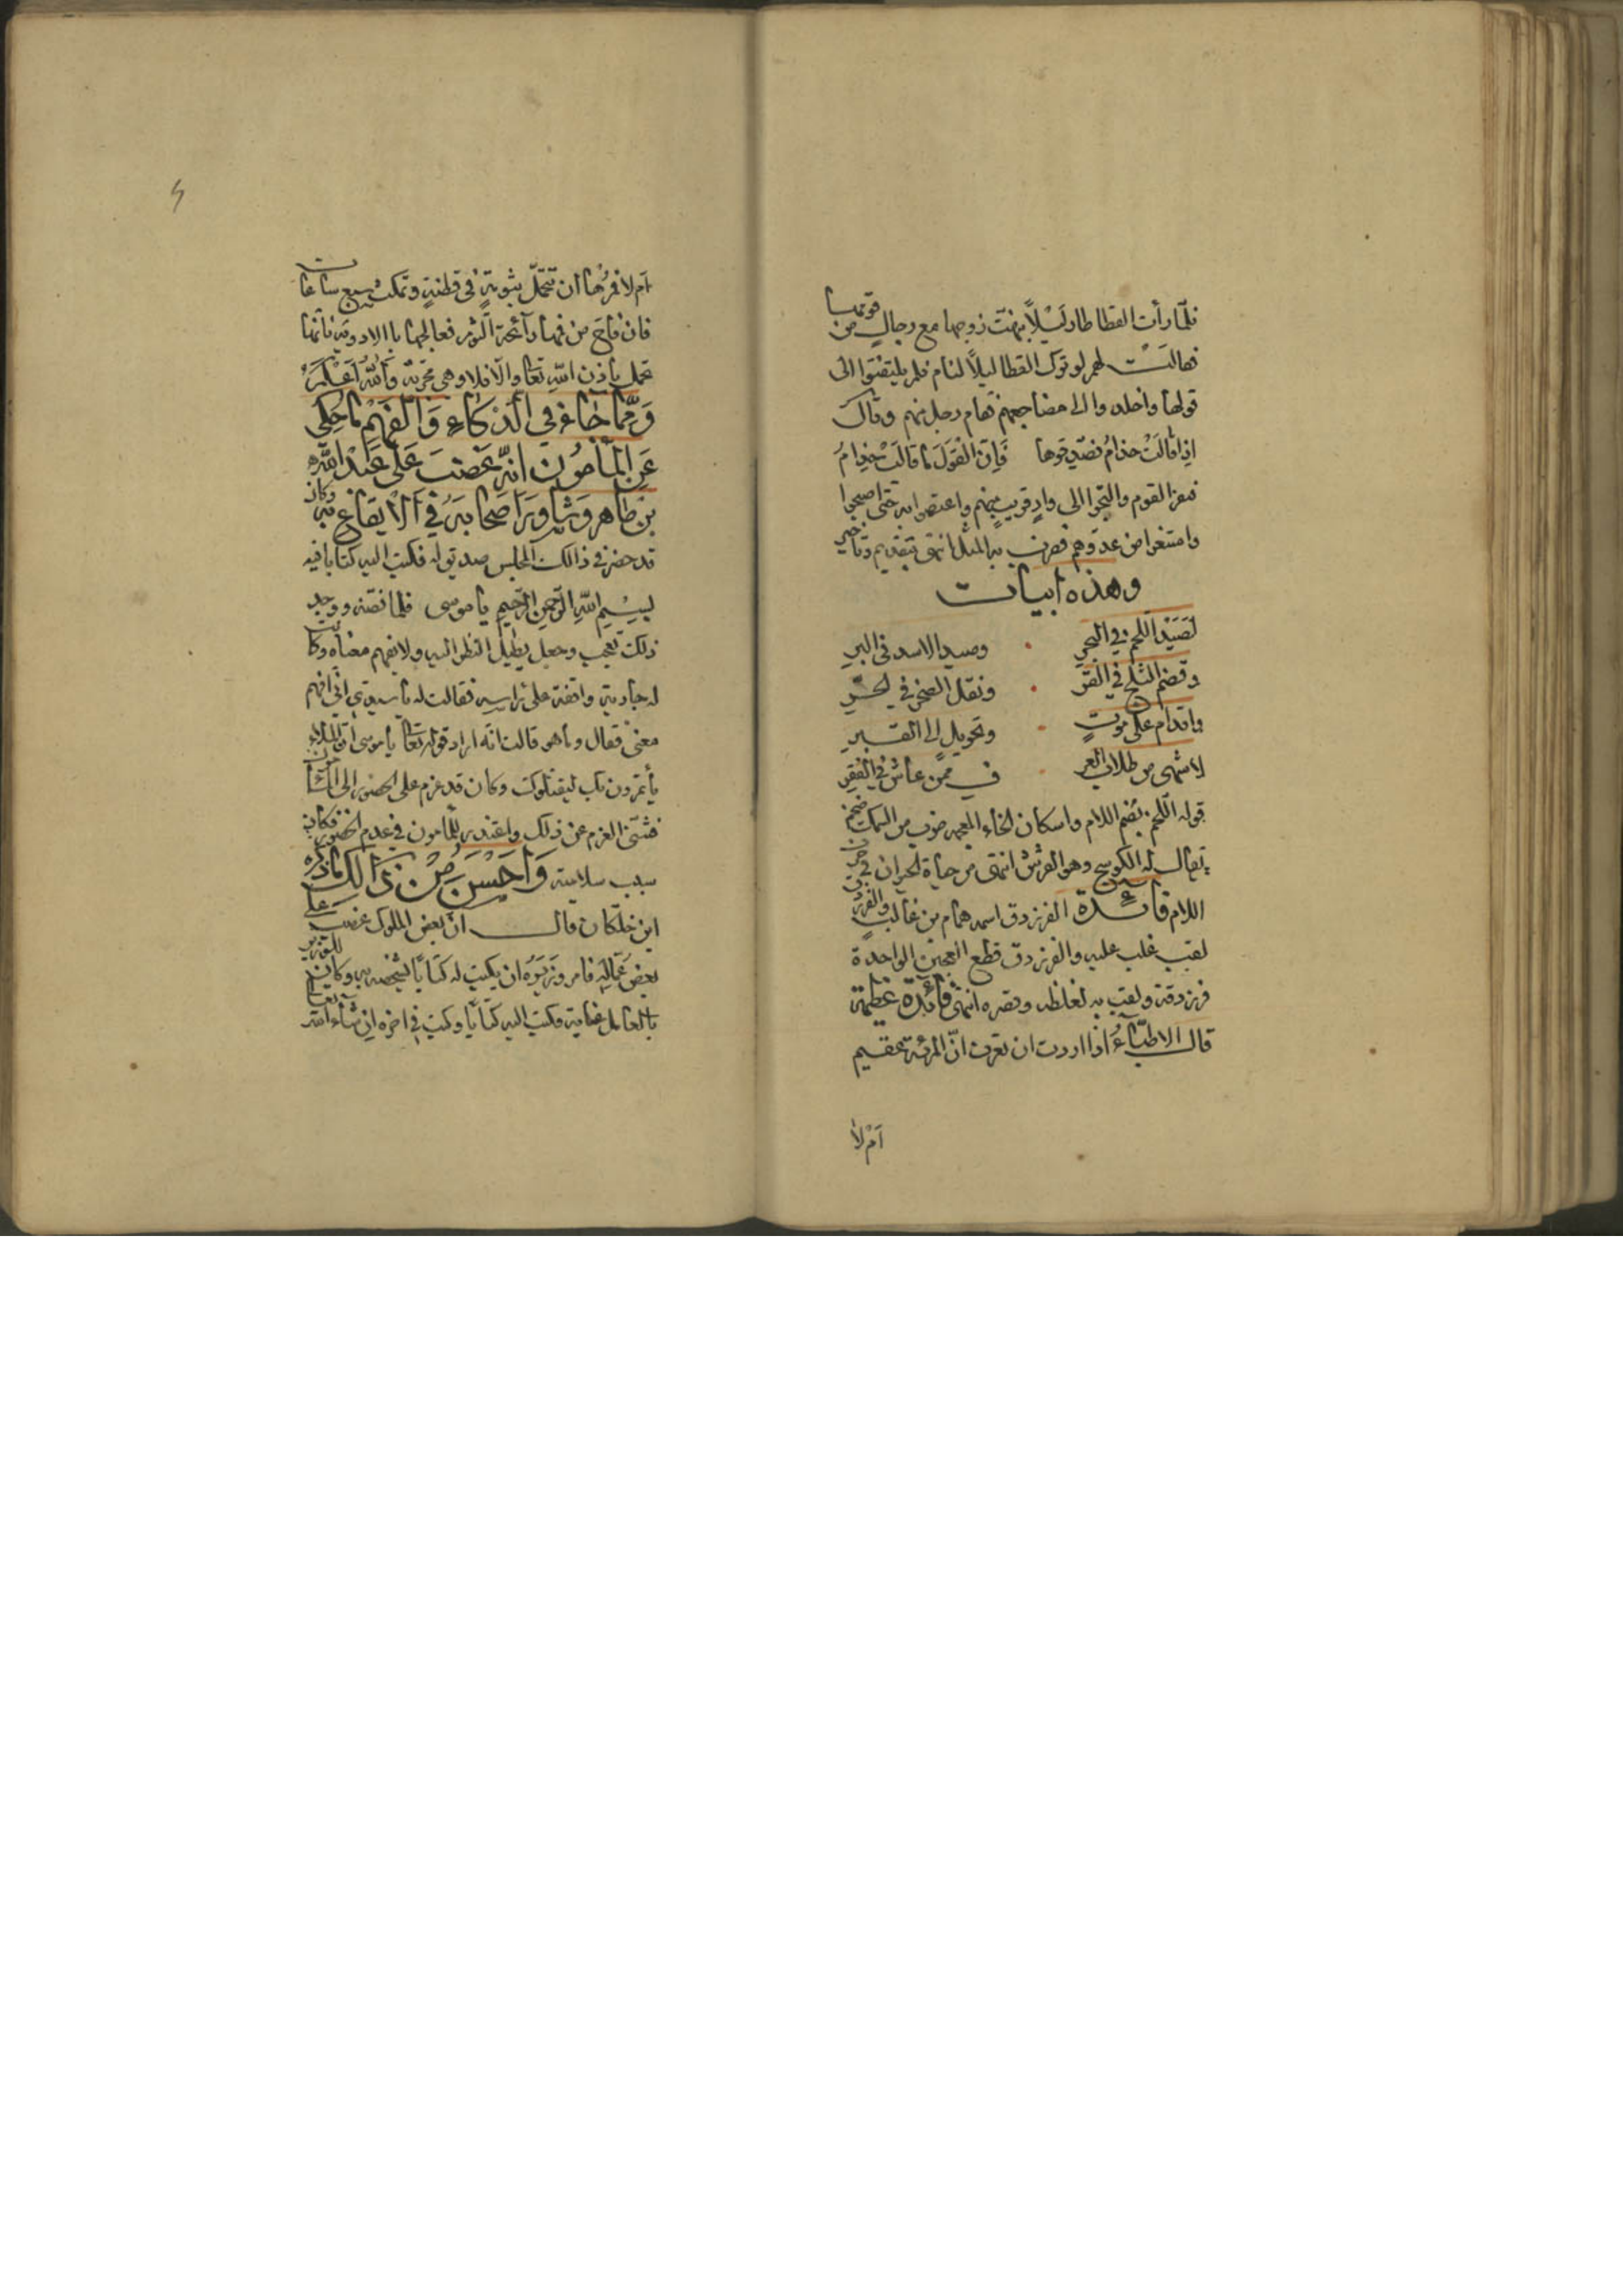 فلمّا رأت القطا طار لَيْلاً نبهتْ زوجها مع رجالٍ من قومها
فقالَتْ لهم لو ترك القطا ليلاً لنام فلم يلتفتوا الى
قولها واخلدوا الى مضاجعهم فقام رجل منهم وقال
اذا قالَتْ حذامُ فصدّقوها فَاِنّ الْقَوْلَ ما قالَتْ حذامُ
فنفر القوم والتجوا الى وادٍ قريبٍ منهم واعتصموا به حتى اصبحوا
وامتنعوا من عدوّهم فضرب به المثل انتهى بتقديم وتأخير
وهذه ابيات
لَصَيْد اللخم في البحر وصيد الاسد في البر
وقضم الثلج في القرّ ونقل الصخر في الحرّ
واقدام على موتٍ وتحويل الى القبر
لاشهى من طلاب العز فـ ممن عاش في الفقر
قوله اللخم بضم اللام واسكان الخاء المعجمه ضرب من السمك ضخم
يقال له الكوسج وهو القرش انتهى من حياة الحيوان في حرف
اللام فائدة الفرزدق اسمه همام بن غالب والفرزدق
لقب غلب عليه والفرزدق قطع العجين الواحدة
فرزدقة ولقب به لغلظه وقصره انتهى فائدة عظيمة
قال الاطبّاءُ اذا اردت ان تعرف انّ المرئة عقيم
اَمْ لا
اَم لا فمرْها ان تتحمّل بثومةٍ في قطنةٍ وتمكث سبع ساعات
فان فاحَ من فمها رآئحة الثوم فعالجها بالادوية فانّها
تحمل باذن اللهِ تعالى والّا فلا وهي مجربة وَاللهُ اَعْلَمُ
وَمِمّا جَاءَ في الذكَاءِ وَالفَهْمِ ما حُكِي
عَنِ الْمَأمُون انّه غَضبَ عَلى عَبْد الله
بن طاهر وَشاوَرَ اَصْحابَهُ في الْايقاع به وكان
قد حضر في ذالك المجلس صديق له فكتب اليه كتابا فيه
بِسْمِ اللهِ الرّحمنِ الرّحيمِ يا موسى فلما فضّه ووجد
ذلك تعجب وجعل يطيل النظر اليه ولا يفهم معناه وكانت
له جارية واقفة على راسه فقالت له يا سيدي انّي افهم
معنى فقال وما هو قالت انّه اراد قوله تعالى يا موسى انّ الملاء
يأتمرون بك ليقتلوك وكان قد عزم على الحضور الى المأمون
فثنّى العزم عن ذلك واعتذر للمامون في عدم الحضور فكان
سبب سلامته وَاَحْسَن مِنْ ذَالِكَ ما ذكره
ابن خلّكان قال ان بعض الملوك غضب على
بعض عُمّالِه فامر وَزيرَهُ ان يكتب له كتاباً يشخصه به وكان للوزير
بالعامل عناية فكتب اليه كتاباً وكتب في اخره ان شاء الله تعالى